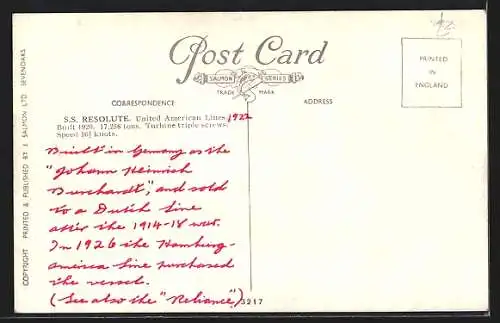 Post Card
SALMON SERIES
TRADE MARK
PRINTED
IN
ENGLAND
CORRESPONDENCE
ADDRESS
S.S. RESOLUTE. United American Lines 1922
Built 1920. 17,258 tons. Turbine triple screws.
Speed 16½ knots.
Built in Germany as the
"Johann Heinrich
Burchardt", and sold
to a Dutch line
after the 1914-18 war.
In 1926 the Hamburg-
america line purchased
the vessel.
(See also the "Reliance")
3217
COPYRIGHT PRINTED & PUBLISHED BY J. SALMON LTD. SEVENOAKS